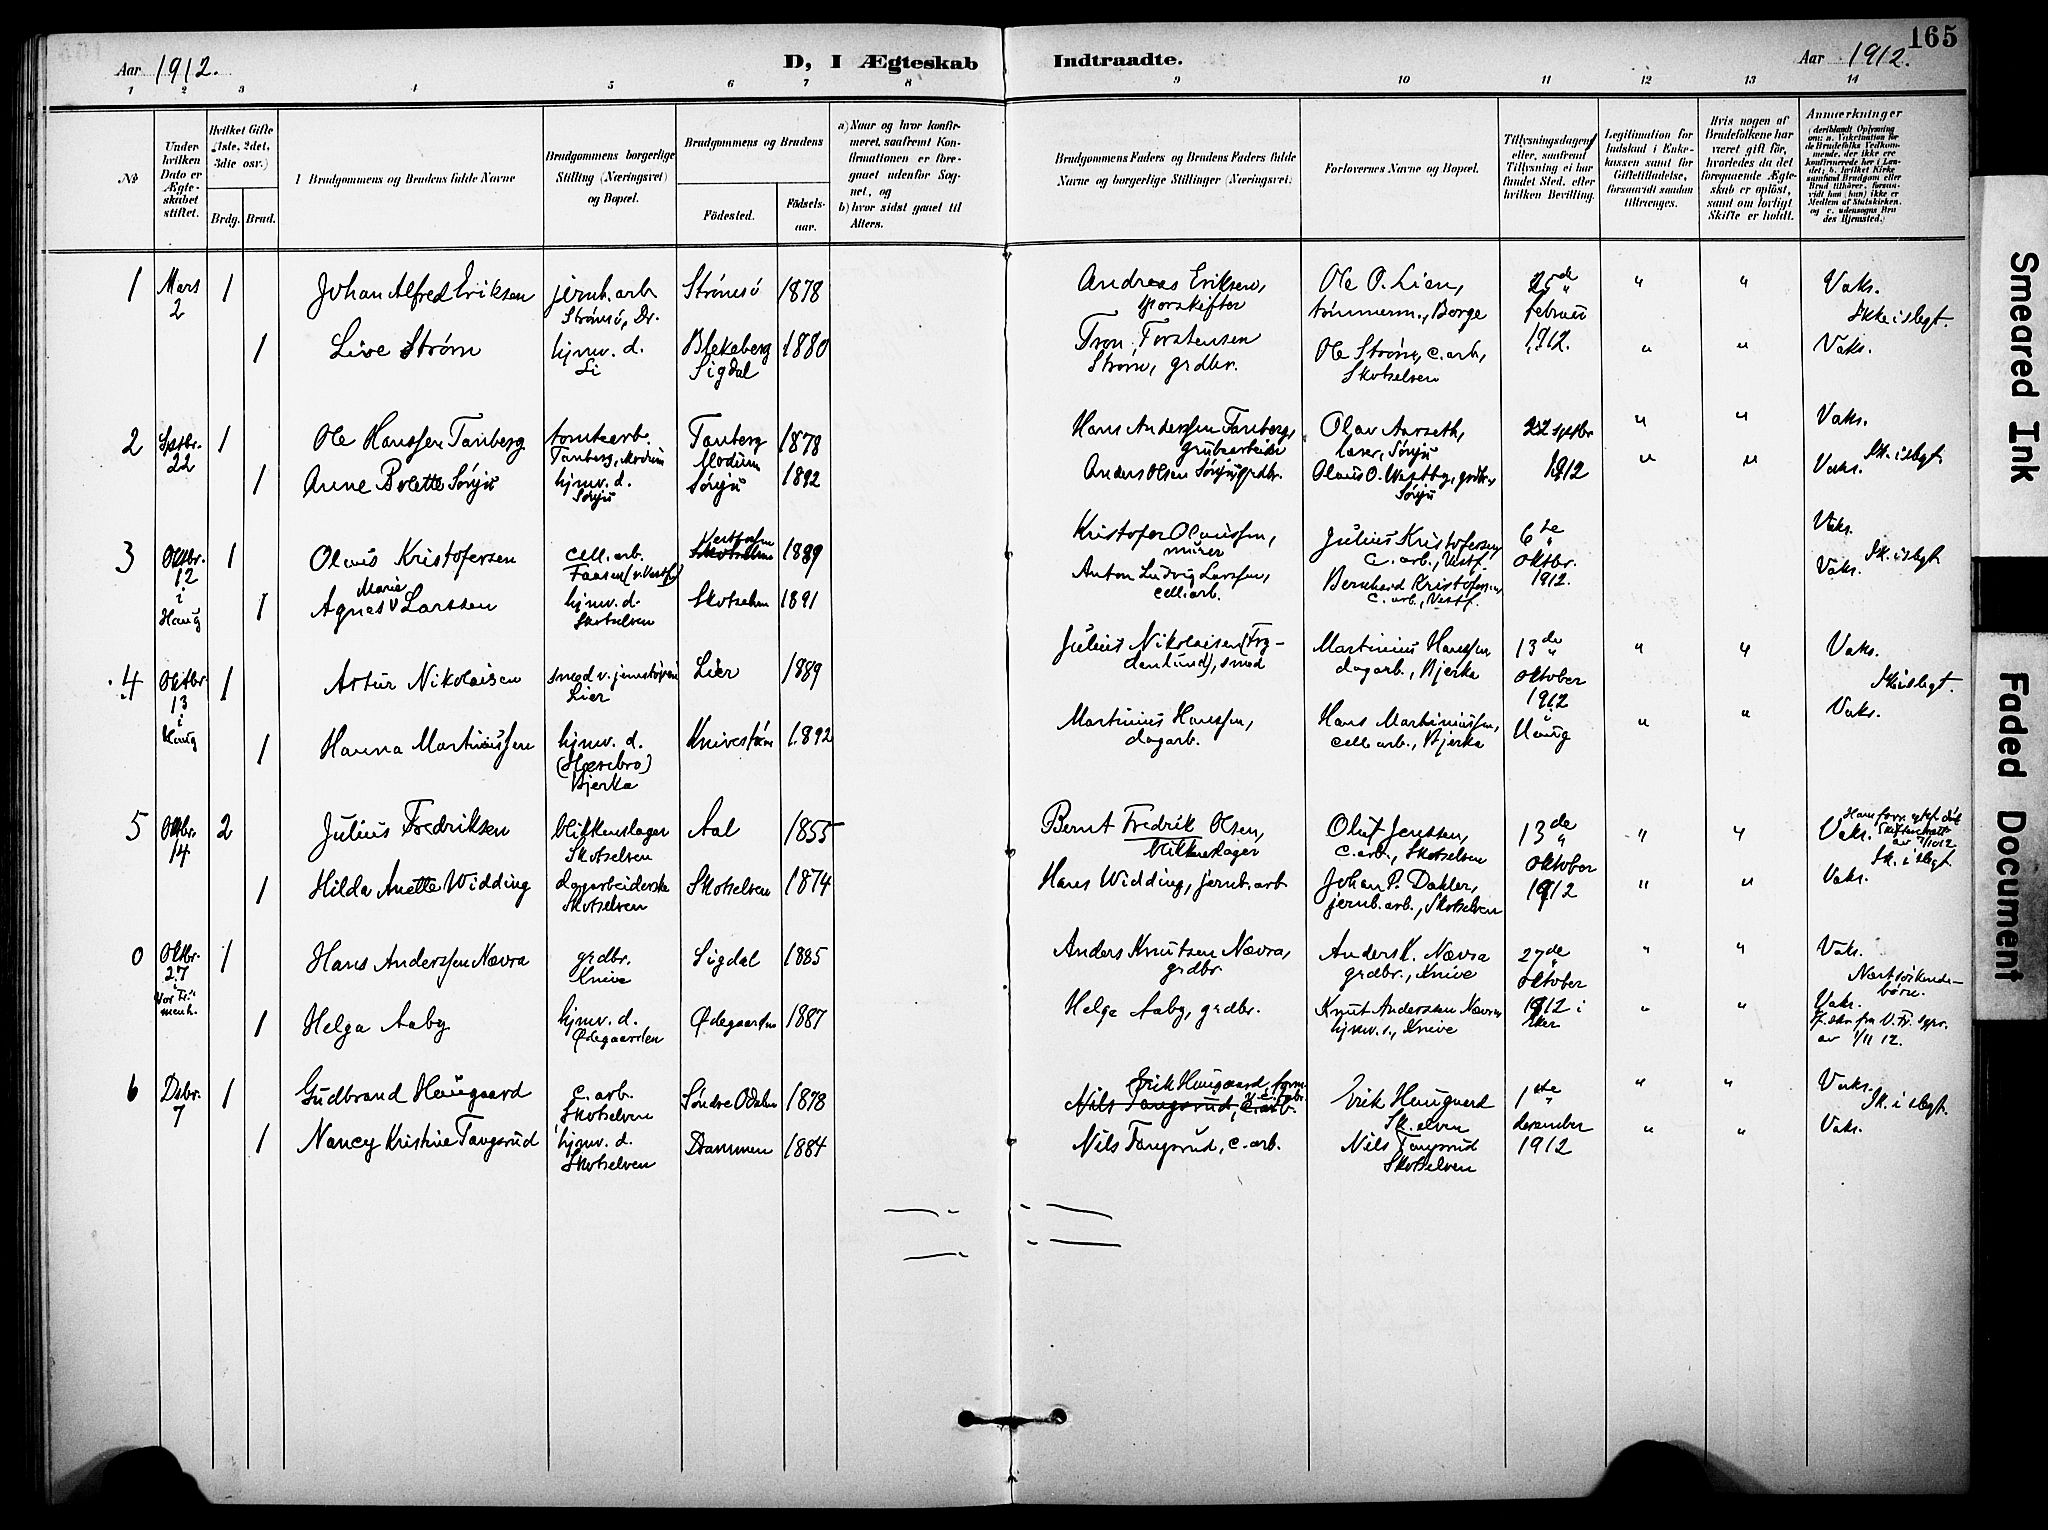 165
Aar 1912.
D, I Ægteskab
Indtraadte.
Aar 1912.
1 2 3 4 5 6 7 8 9 10 11 12 13 14
No
Under hvilken Dato er Ægteskabet stiftet.
Hvilket Gifte (1ste, 2det, 3die osv.)
Brdg. Brud.
Brudgommens og Brudens fulde Navne
Brudgommens borgerlige Stilling (Næringsvei) og Bopæl.
Brudgommens og Brudens
Födested. Födselsaar.
a) Naar og hvor konfirmeret, saafremt Konfirmationen er foregaaet udenfor Sognet, og
b) hvor sidst gaaet til Alters.
Brudgommens Faders og Brudens Faders fulde Navne og borgerlige Stillinger (Næringsvei)
Forlovernes Navne og Bopæl.
Tillysningsdagen eller, saafremt Tillysning ei har fundet Sted, efter hvilken Bevilling.
Legitimation for Indskud i Enkekassen samt for Giftetilladelse, forsaavidt saadan tiltrænges.
Hvis nogen af Brudefolkene har været gift før, hvorledes da det foregaaende Ægteskab er oplöst, samt om lovligt Skifte er holdt.
Anmærkninger
1 Mars 2 1 Johan Alfred Eriksen jernb.arb. Strømsö, Dr. Strømsö 1878 Andreas Eriksen, Ole O. Lien, tömmerm., Borge 25de februar 1912. " " Vaks.
Ikke i slegt.
1 Live Strøm hjmv. d. Li Blekeberg Sigdal 1880 Tron Torstensen Strøm, grdbr. Ole Strøm, c. arb, Skotselven " " Vaks.
2 Septbr. 22 1 Ole Hanssen Tanberg tomtearb. Tanberg, Modum Tanberg Modum 1878 Hans Anderssen Tanberg, grubearbeider Olav Aarseth, lærer, Sørgju 22 septbr 1912 " " Vaks.
Ik. i slegt.
1 Anne Bolette Sørgju hjmv. d. Sørgju Sørgju 1892 Anders Olsen Sørgju, grdbr. Olaus O. Westby, grdbr, Sørgju " " Vaks.
3 Oktbr. 12 i Haug 1 Olaus Kristofersen cell. arb. Faasen (v. Vestf.) Vestfossen Skotselven 1889 Kristofer Olaussen, murer Julius Kristofersen c. arb., Vestf. 6te oktbr. 1912. Vaks.
Ik. i slegt
1 Agnes Marie Larssen hjmv. d. Skotselven Skotselven 1891 Anton Ludvig Larssen, cell.arb. Bernhard Kristofersen c. arb., Vestf. Vaks.
4 Oktbr 13 i Haug 1 Artur Nikolaisen smed v. jernstöperi Lier Lier 1889 Julius Nikolaisen (Frydenlund), smed Martinius Hanssen dagarb., Bjerka 13de oktober 1912 i Haug " " Vaks.
Ik. i slegt.
1 Hanna Martiniussen hjmv. d. (Horsebro) Bjerka Knivestøen 1892 Martinius Hanssen, dagarb. Hans Martiniussen, cell. arb., Bjerka " " Vaks.
5 Oktbr. 14 2 Julius Fredriksen blikkenslager Skotselven Aal 1855 Bernt Fredrik Olsen, blikkenslager Oluf Jenssen, c. arb., Skotselven 13de oktober 1912 " " Vaks.
Ik. i slegt
1 Hilda Anette Widding dagarbeiderske Skotselven Skotselven 1874 Hans Widding, jernb. arb. Johan P. Dokler, jernb. arb., Skotselven " " Vaks.
0 Oktbr. 27 i Vor Fr.menh. 1 Hans Anderssen Nævra grdbr. Knive Sigdal 1885 Anders Knutsen Nævra, grdbr. Anders K. Nævra grdbr., Knive 27de oktober 1912 i Eker " " Vaks.
Næstsöskendebörn.
1 Helga Aaby hjmv. d. Ødegaarden Ødegaarden 1887 Helge Aaby, grdbr. Knut Anderssen Nævra hjmv. s., Knive " " Vaks.
av 1/11 12.
6 Dsbr. 7 1 Gudbrand Haugaard c. arb. Skotselven Søndre Odalen 1878 Erik Haugaard, Nils Tangsrud, c. arb. Erik Haugaard Sk.elven 1ste desember 1912 " " Vaks.
Ik. i slegt.
1 Nancy Kristine Tangsrud hjmv. d. Skotselven Drammen 1884 Nils Tangsrud, c. arb. Nils Tangsrud Skotselven " " Vaks.
Smeared Ink
Faded Document